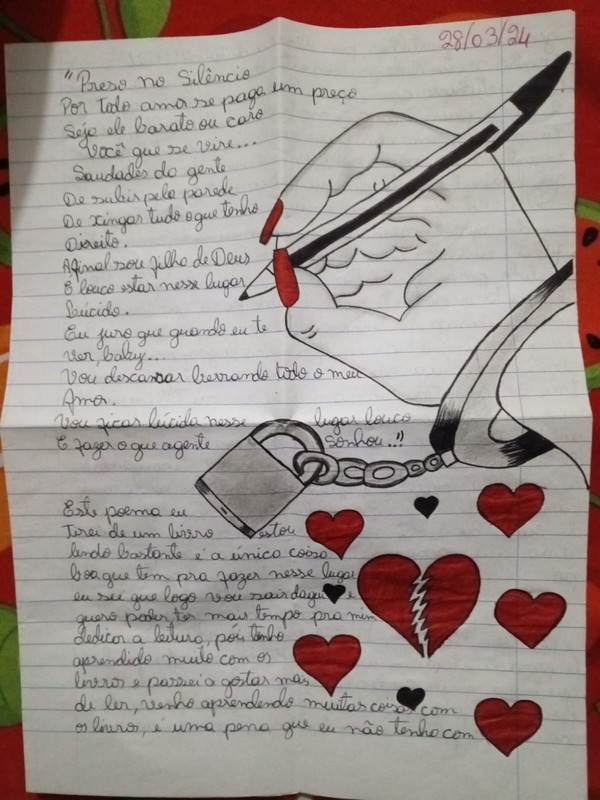 28/03/24
"Preso no Silêncio
Por todo amor se paga um preço
Seja ele barato ou caro
Você que se vire...
Saudades da gente
De subir pela parede
De xingar tudo o que tenho
Direito.
Afinal sou filho de Deus
E louco estar nesse lugar
Lúcido.
Eu juro que quando eu te
ver, baby...
Vou descansar berrando todo o meu
Amor.
Vou ficar lúcida nesse lugar louco
E fazer o que agente Sonhou.."
Este poema eu
tirei de um livro estou
lendo bastante é a única coisa
boa que tem pra fazer nesse lugar
eu sei que logo vou sair daqui e
quero poder ter mais tempo pra mim
dedicar a leitura, pois tenho
aprendido muito com os
livros e passei a gostar mas
de ler, venho aprendendo muitas coisas com
os livros, é uma pena que eu não tenho com